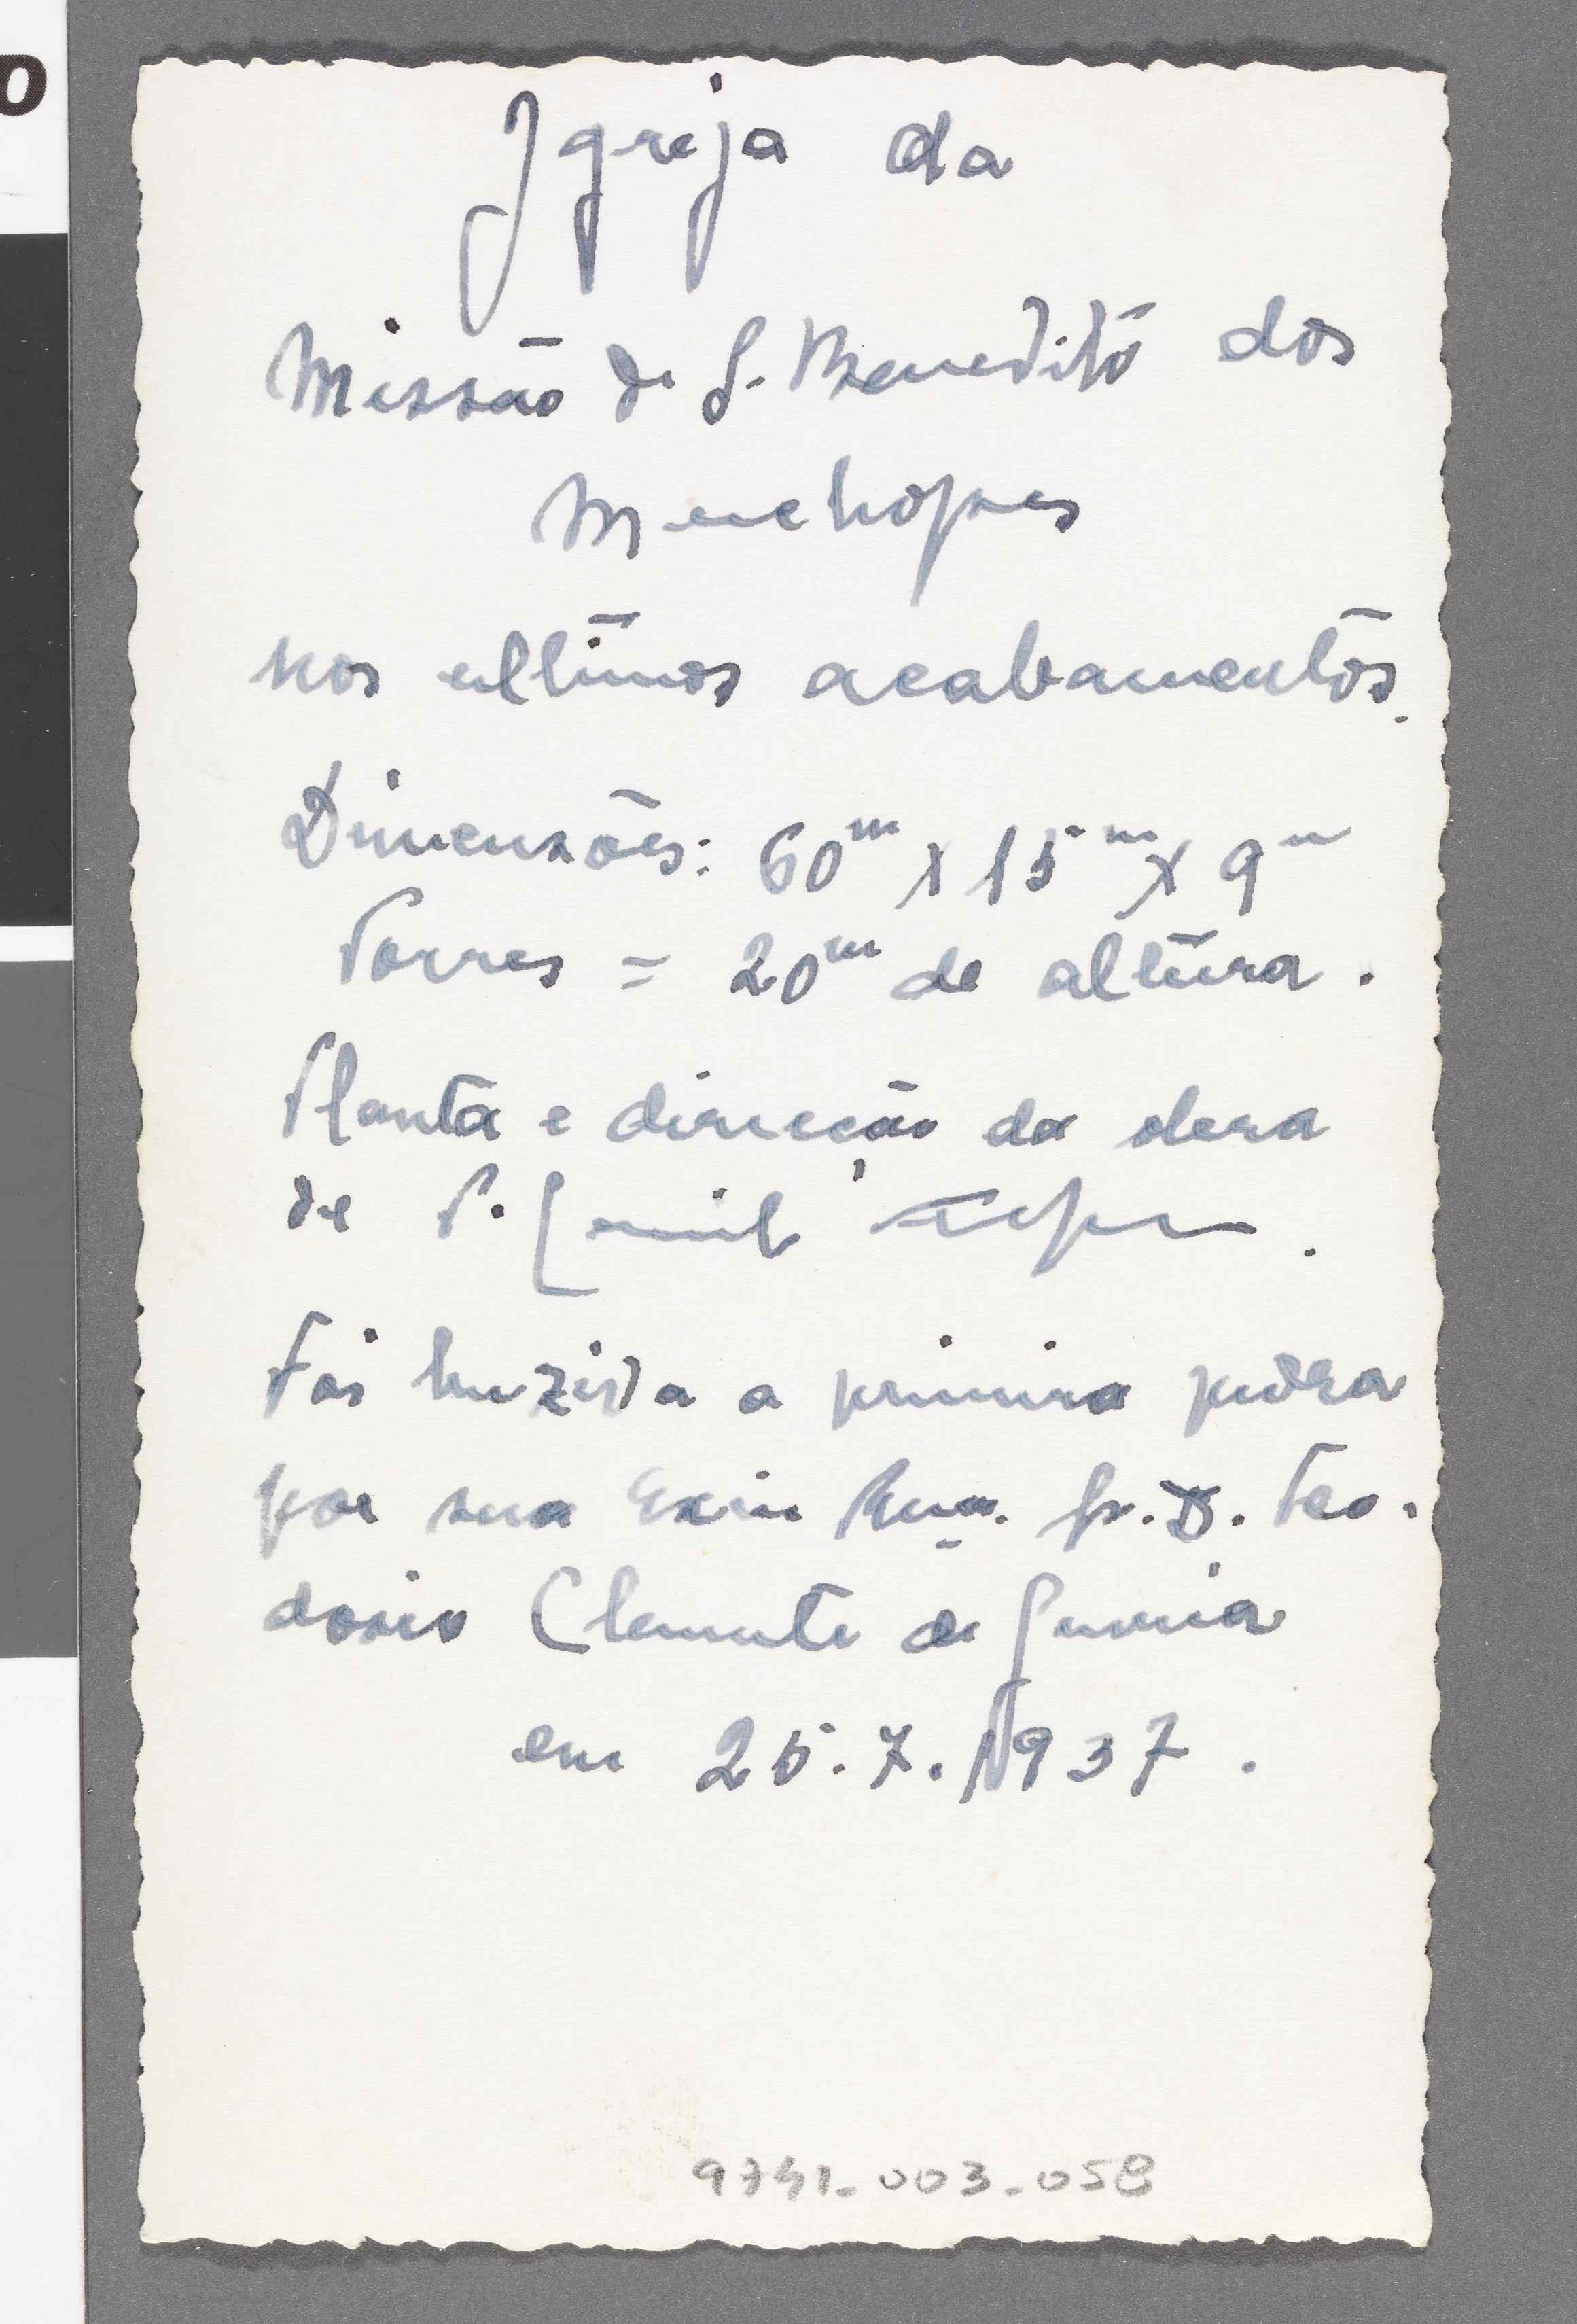 Igreja da
Missão de S. Benedito dos
Muchopes
nos ultimos acabamentos.
Dimensões: 60m x 15m x 9m
Torres = 20m de altura.
Planta e direcção da obra
de P.
Foi benzida a primeira pedra
por sua Excia Rvma. Sr. D. Teo-
dosio Clemente de Gouveia
em 25.7.1937.
9741-003-058